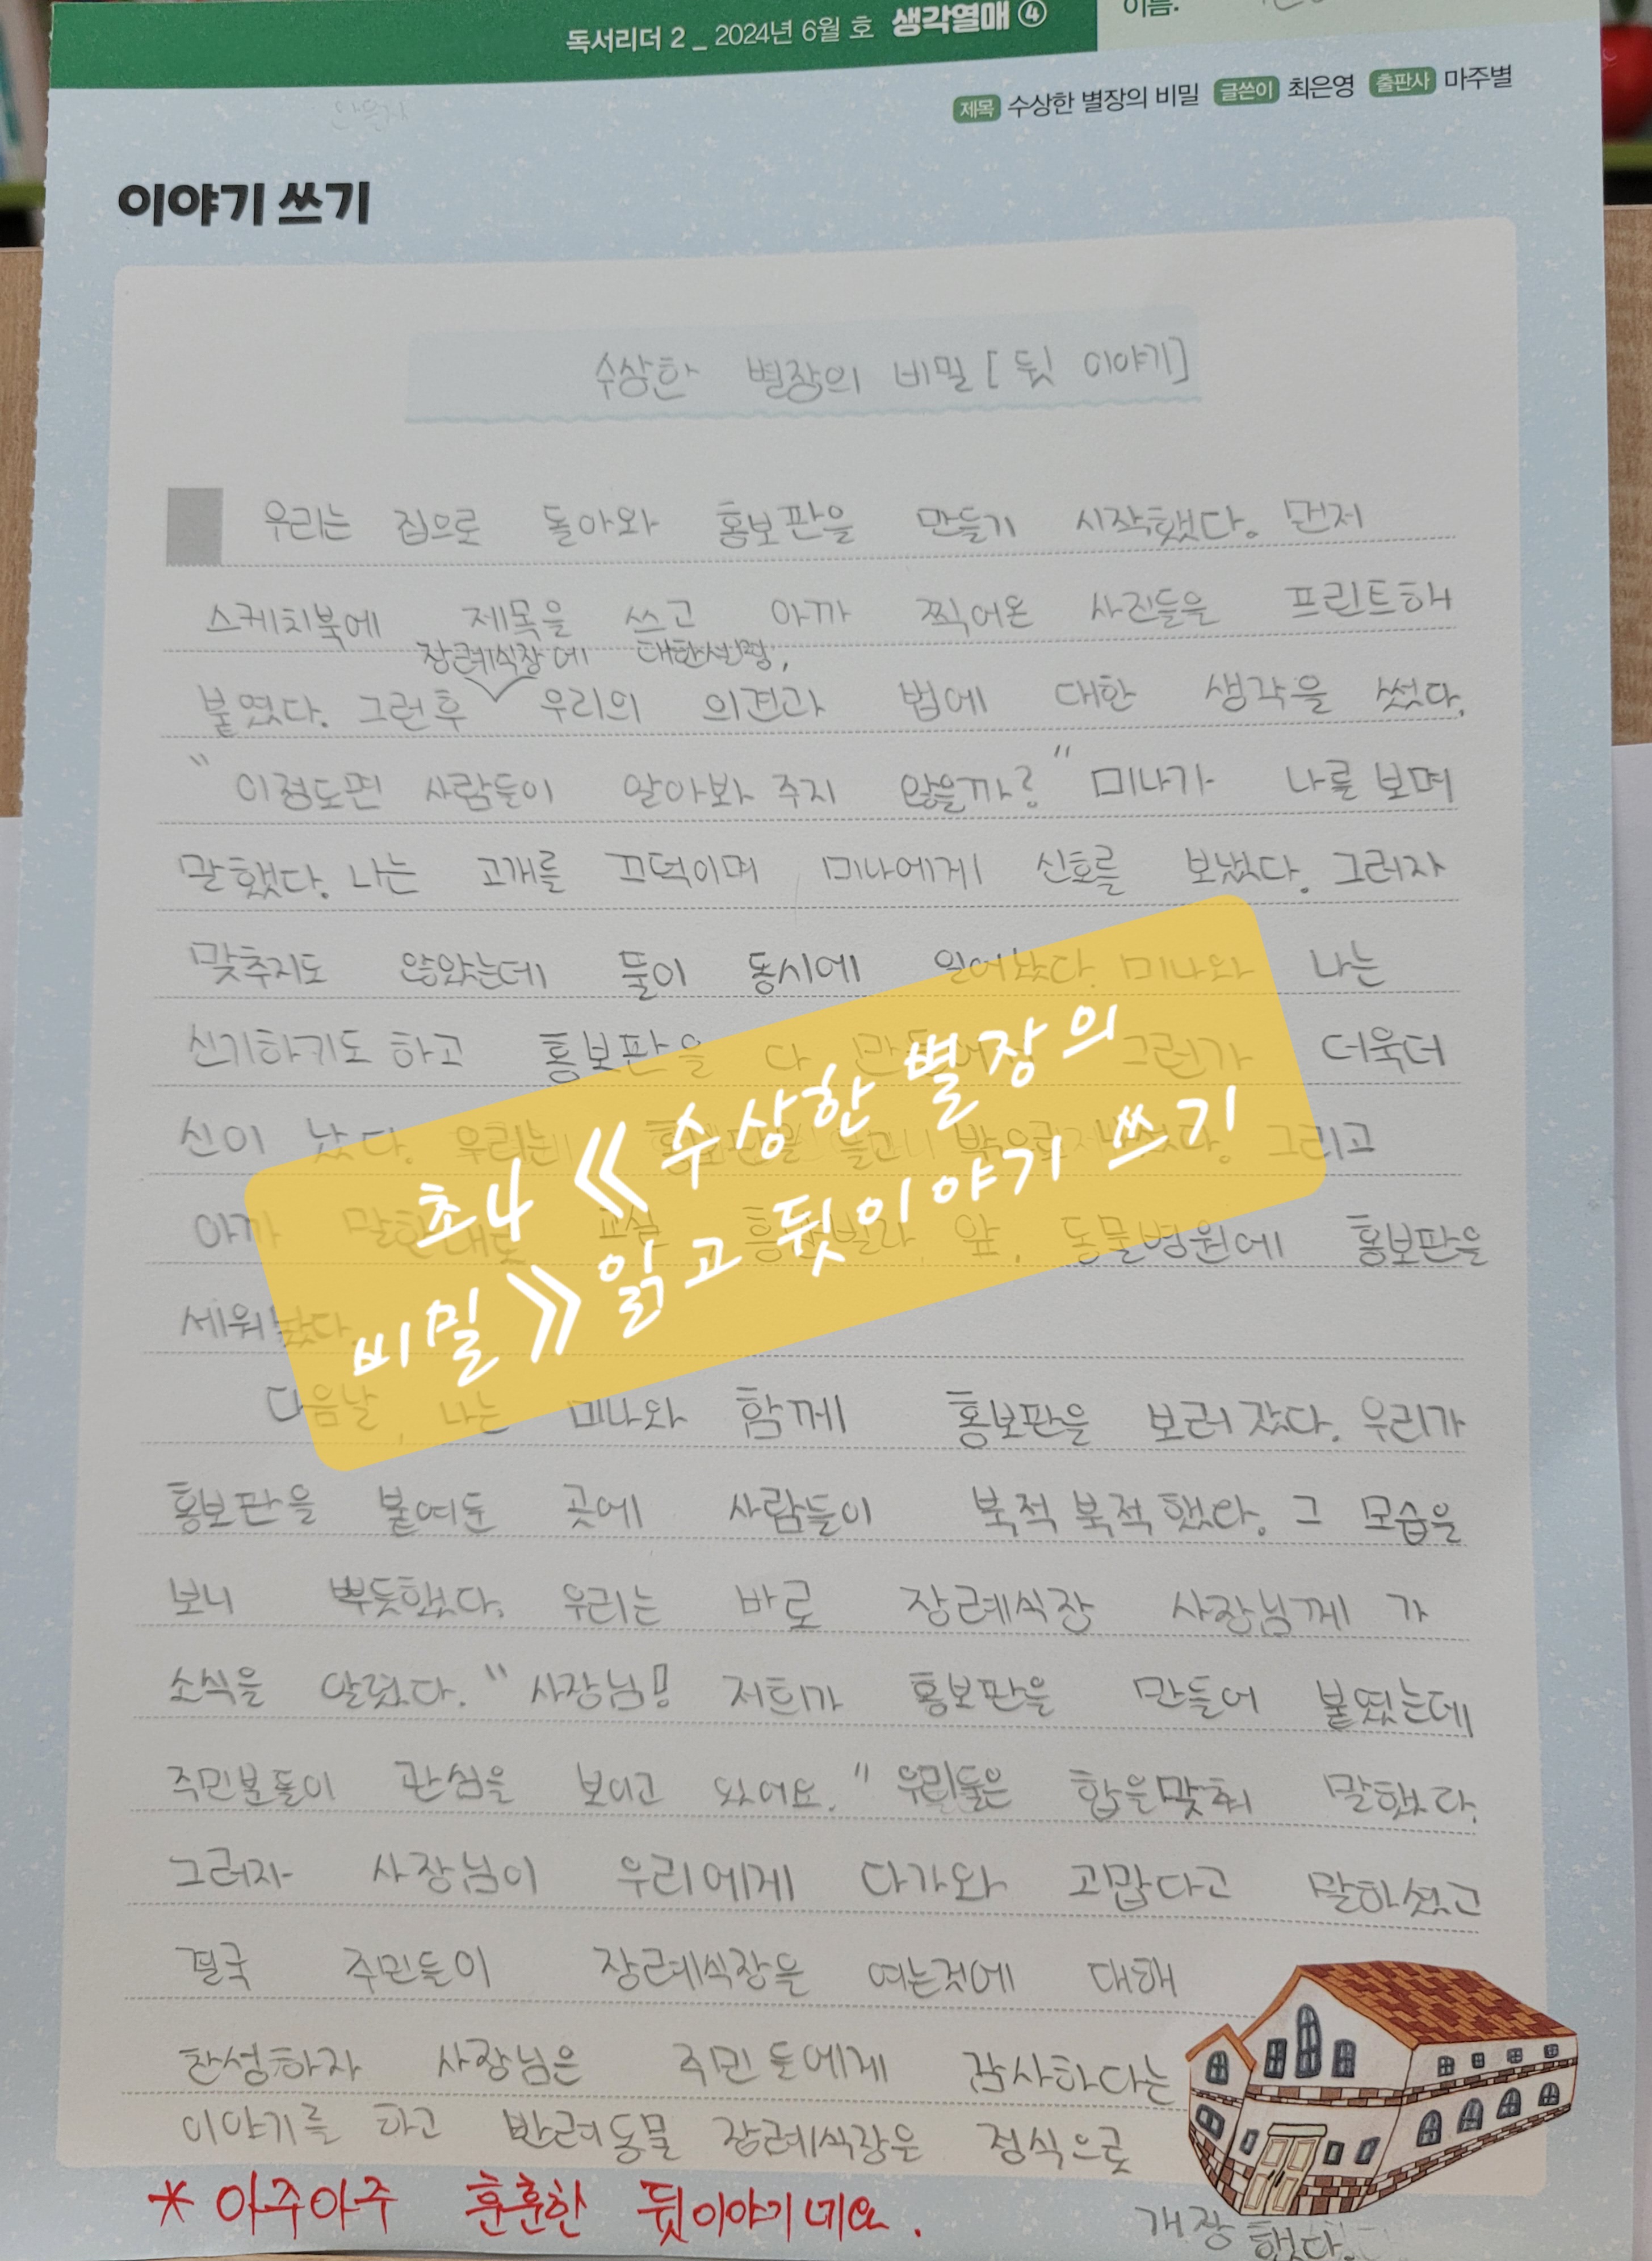 독서리더 2 _ 2024년 6월 호 생각열매 ④
이름:
제목 수상한 별장의 비밀 글쓴이 최은영 출판사 마주별
이야기 쓰기
수상한 별장의 비밀 [뒷 이야기]
우리는 집으로 돌아와 홍보판을 만들기 시작했다. 먼저
스케치북에 제목을 쓰고 아까 찍어온 사진들을 프린트해
장례식장에 대한설명,
붙였다. 그런후 우리의 의견과 법에 대한 생각을 썼다.
"이정도면 사람들이 알아봐 주지 않을까?" 미나가 나를 보며
말했다. 나는 고개를 끄덕이며 미나에게 신호를 보냈다. 그러자
맞추지도 않았는데 둘이 동시에 일어났다. 미나와 나는
신기하기도 하고 홍보판을 다 만들어서 그런가 더욱더
신이 났다. 우리는 홍보판을 들고 밖으로 나갔다. 그리고
아까 말한대로 앞, 동물병원에 홍보판을
세워놨다.
다음날, 나는 미나와 함께 홍보판을 보러 갔다. 우리가
홍보판을 붙여둔 곳에 사람들이 북적북적했다. 그 모습을
보니 뿌듯했다. 우리는 바로 장례식장 사장님께 가
소식을 알렸다. "사장님! 저희가 홍보판을 만들어 붙였는데
주민분들이 관심을 보이고 있어요." 우리둘은 합을맞춰 말했다.
그러자 사장님이 우리에게 다가와 고맙다고 말하셨고
결국 주민들이 장례식장을 여는것에 대해
찬성하자 사장님은 주민들에게 감사하다는
이야기를 하고 반려동물 장례식장은 정식으로
개장했다.
* 아주아주 훈훈한 뒷이야기네요.
초4 《수상한 별장의
비밀》 읽고 뒷이야기 쓰기